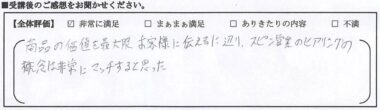 ■受講後のご感想をお聞かせください。
【全体評価】 ☑ 非常に満足 □ まぁまぁ満足 □ ありきたりの内容 □ 不満
商品の価値を最大限、お客様に伝えるに辺り、スピン営業のヒアリングの
概念は非常にマッチすると思った